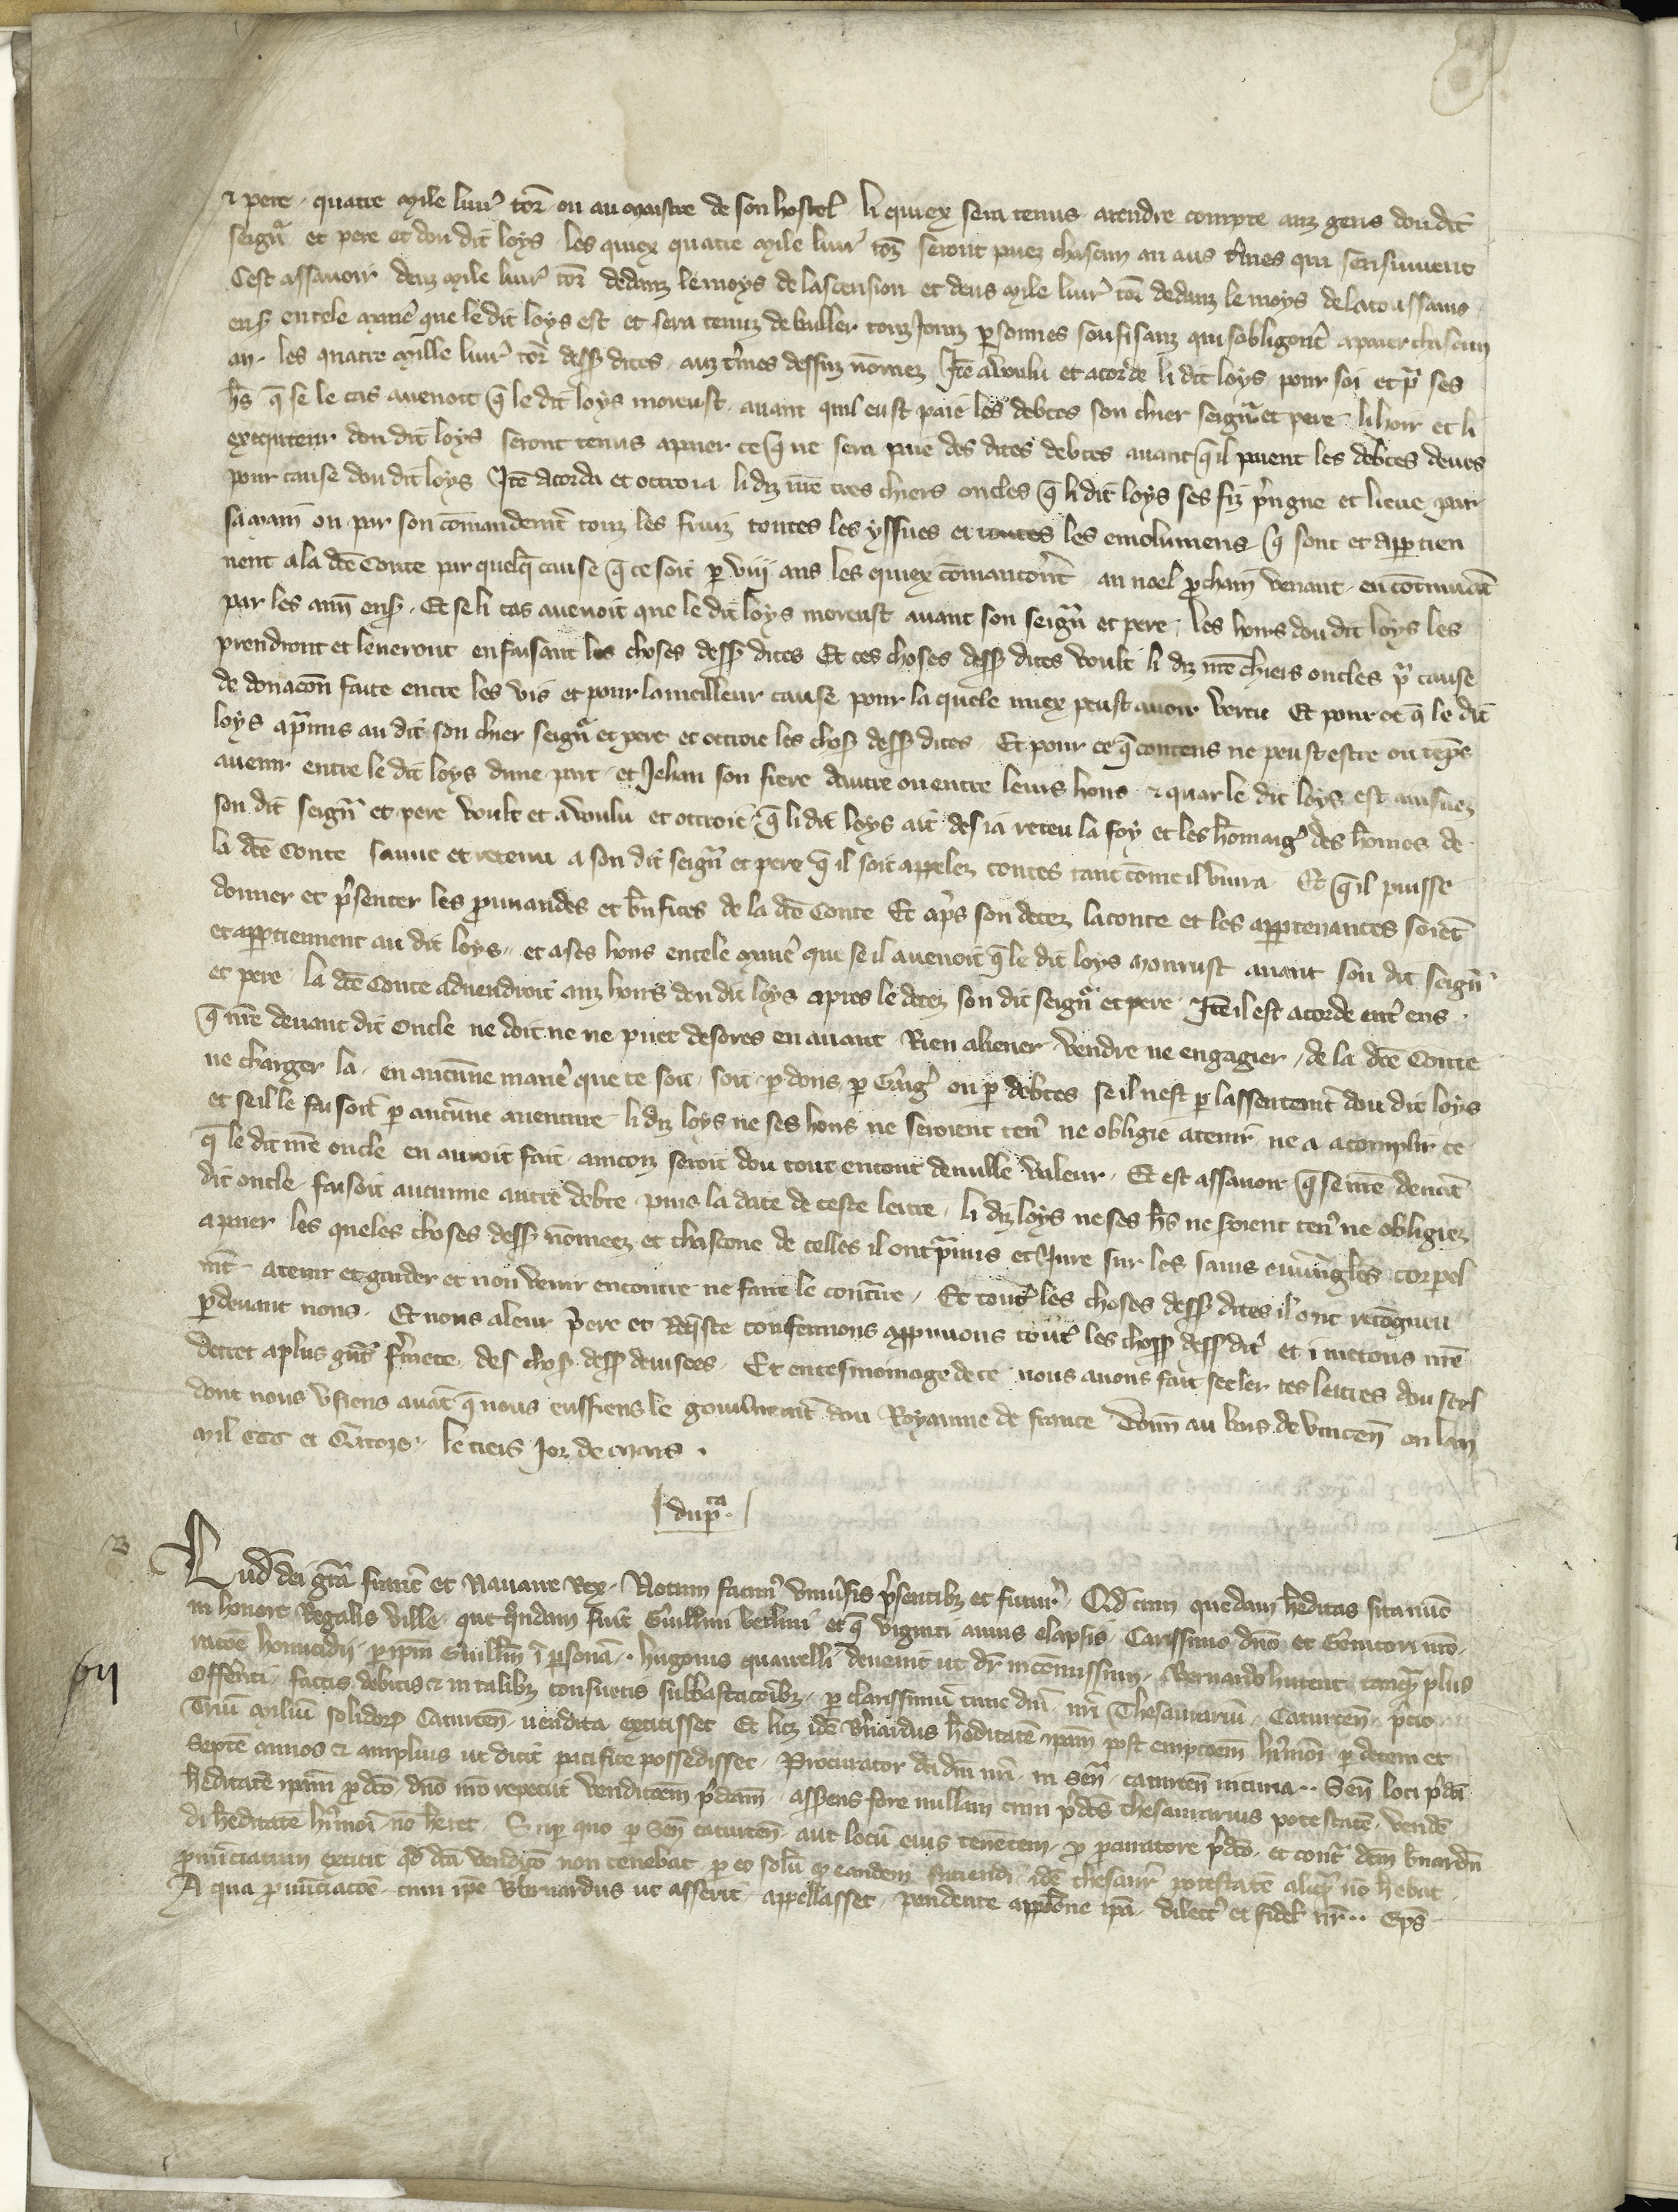 ⁊ pere . quatre mile livr̃ tor̃ ou au maistre de son hostel . li quiex sera tenus a rendre compte aux gens dou dit
seign̄r et pere et dou dit loys . les quiex quatre mile livr̃ tor̃ seront paiez chascun an aus t̃mes qui sensuivent
Cest assavoir deuz mile livr̃ tor̃ dedanz le moys de lascension et deus mile livr̃ tor̃ dedanz le moys de la toussains
ens̃ en tele manẽ que le dit loys est et sera tenuz de baller touz jourz p̱sonnes soufisanz qui sobligerõt a paier chascun
an . les quatre mille livr̃ tor̃ dess̃ dites . aux t̃mes dessuz nõmez . Itẽ a voulu et acorde li dit loys pour soi et pͬ ses
h̃s q̃ se le cas avenoit q̃ le dit loys moreust . avant quil eust paie les debtes son chier seign̄r et pere . li hoir et li
exequteur dou dit loys seront tenus a paier ce q̃ ne sera paie des dites debtes avant q̃ il paient les debtes deues
pour cause dou dit loys . Itẽ acorda et ottroia li diz nr̃e tres chiers oncles q̃ li dit loys ses fiz p̃ngne et lieve par
sa main ou par son cõmandemt̃ touz les fruiz toutes les yssues et toutes les emolumens q̃ sont et app̱tien
nent a la dc̃e Conte par quelq̃ cause q̃ ce soit p̱ viij ans les quiex cõmancer̃nt au noel p̱chain venant . en cõtinuãt
par les ann̄ ens̃ . Et se li cas avenoit que le dit loys moreust avant son seign̄r et pere . les hoirs dou dit loys les
prendront et leveront en faisant les choses dess̃ dites Et ces choses dess̃ dites voult li diz nr̃e chiers oncles pͬ cause
de donacõn faite entre les vis et pour la meilleur cause pour la quele miex peust avoir vertu Et pour ce q̃ le dit
loys a p̱mis au dit son chier seign̄r et pere et ottroie les chos̃ dess̃ dites . Et pour ce q̃ contens ne peust estre ou tẽps
avenir entre le dit loys dune part . et Jehan son frere dautre ou entre leurs hoirs . ⁊ quar le dit loys est ainsnez
son dit seign̄r et pere voult et a voulu et ottroie q̃ li dit loys ait des ia receu la foy et les hõmaig̃ des hõmes de
la dc̃e Conte sauve et retenu a son dit seign̄r et pere q̃ il soit appelez contes tant cõme il vivra Et q̃ il puisse
donner et p̃senter les p̱uvandes et bñfices de la dc̃e Conte Et ap̃s son decez la conte et les app̱tenances soiẽt
et app̱tiennent au dit loys . et a ses hoirs en tele manẽ que se il avenoit q̃ le dit loys mourust avant son dit seign̄r
et pere . la dc̃e Conte advendroit aux hoirs dou dit loys apres le decez son dit seign̄r et pere . Itẽ il est acorde ent̃ eus .
q̃ nr̃e devant dit oncle ne doit ne ne puet desores en avant Rien aliener vendre ne engagier . de la dc̃e Conte
ne charger la . en aucune manẽ que ce soit . soit p̱ dons p̱ gaig̃ ou p̱ debtes se il nest p̱ lassentemt̃ dou dit loys
et se il le faisoit p̱ aucune aventure . li diz loys ne ses hoirs ne seroient ten̾ ne obligie a tenir ne a acomplir ce
q̃ le dit nr̃e oncle en auroit fait . aincoiz seroit dou tout en tout de nulle valeur . Et est assavoir q̃ se nr̃e devãt
dit oncle faisoit aucune autre debte . puis la date de ceste lettre . li diz loys ne ses h̃s ne s̃oient ten̾ ne obligiez
a paier les queles choses dess̃ nõmeez et chascone de celles il ont p̱mis et Jure sur les sains euvangiles corpel
mt̃ . a tenir et garder et non venir encontre ne faire le cont̃re . Et tout̃ les choses dess̃ dites il ont recõgneu
p̱devant nous . Et nous a leur p̃ere et Req̃ste confermons app̱uvons tout̃ les chos̃ dess̃ dit̃ et i mettons nr̃e
decret a plus gñt f̃mete . des chos̃ dess̃ devisees . Et en tesmoinage de ce nous avons fait seeler ces lettres dou seel
dont nous usiens avãt q̃ nous eussiens le gouv̾nemt̃ dou Royaume de france Donñ au bois de vincenñ en lan
mil CCC et Q̃torze . le tiers Jor de mars .
dupͨᵃ .
Lud̃ dei gr̃a franc̃ et Navarre Rex . Notum facim̾ univ̾sis p̃sentib; et futur̃ . Qd̃ cum quedam h̃editas sita nuñc
in honore Regalis ville . que q̾ndam fuit Guill̃mi et q̃ viginti annis elapsis . Carissimo dño et Genitori nr̃o .
racõe homicidij . p̱ ip̃m Guill̃m ĩ p̱sonã .. hugonis quarelli devenit ut dr̃ in cõmissum . Bernardo tanq̃ plus
offer̃nti . factis debitis ⁊ in talib; consuetis subhastacõib; . p̱ clarissimũ tunc dñi . nr̃i Thesaurariũ . Caturceñ . p̃cio
Triũ miliũ solidor̃ Caturceñ . vendita extitisset Et licet idẽ B̃nardus h̃editatẽ ip̃am post empcõem hui̾moi p̱ decem et
septẽ annos ⁊ amplius ut dicit pacifice possedisset . Procurator dc̃i dñi nr̃i . in Señ . caturceñ in curia .. Señ loci p̃dc̃i
h̃editatẽ ip̃am p̱ dc̃o . dño nr̃o repeciit vendicõem p̃dc̃am . asserens fore nullam cum p̃dc̃s thesaurarius potestatẽ . venden̄
di h̃editatẽ hui̾moi . nõ h̃eret . Sup̱ quo p̱ Señ caturceñ . aut locũ eius tenẽtem . p̱ p̱curatore p̃dc̃o . et cont̃ dc̃m b̃nardũ
p̱nũciatum extitit qd̃ dc̃a vendicõ non tenebat . p̱ eo solũ q̱ eandem faciendi . idẽ thesaur̃ potestatẽ aliq̃ nõ h̃ebat .
A qua p̱nũciacõe . cum ip̃e B̃ernardus ut asserit . appellasset . pendente appell̃one ip̃a . dilect̾ et fidel̃ nr̃ .. Ep̃s